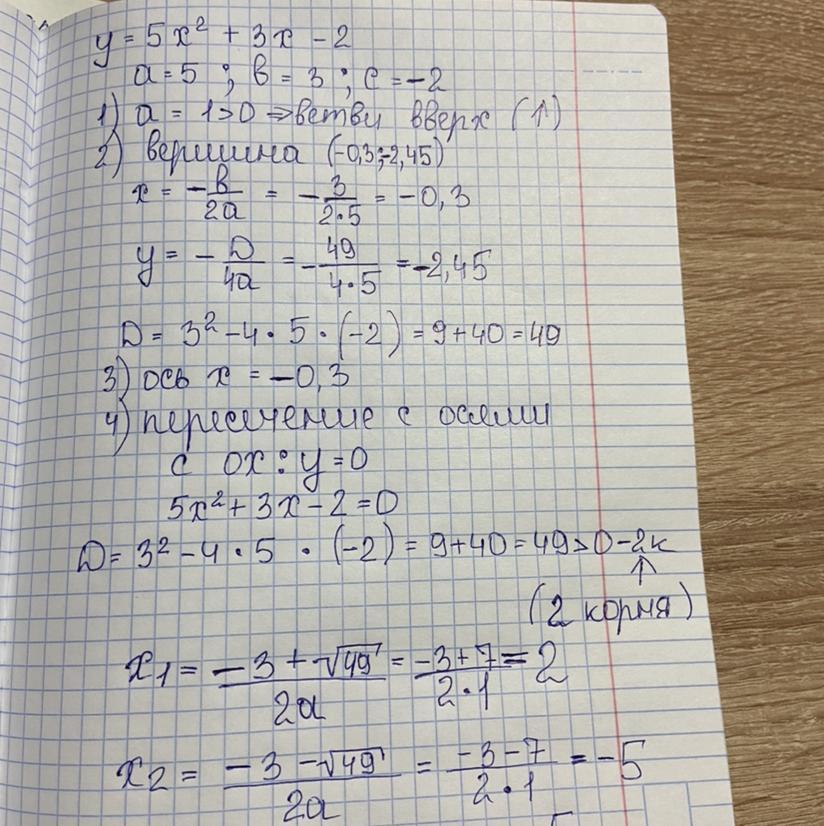 y = 5x² + 3x - 2
a = 5 ; b = 3 ; c = -2
1) a = 1 > 0 ⇒ ветви вверх (↑)
2) вершина (-0,3;-2,45)
x = -b/2a = -3/2·5 = -0,3
y = -D/4a = -49/4·5 = -2,45
D = 3² - 4 · 5 · (-2) = 9 + 40 = 49
3) ось x = -0,3
4) пересечение с осями
с ox : y = 0
5x² + 3x - 2 = 0
D = 3² - 4 · 5 · (-2) = 9 + 40 = 49 > 0 - 2к
↑
(2 корня)
x₁ = -3 + √49/2a = -3 + 7/2·1 = 2
x₂ = -3 - √49/2a = -3 - 7/2·1 = -5